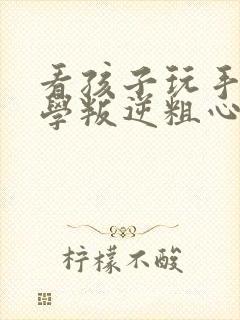 看孩子玩手
學叛逆粗心
柠檬不酸